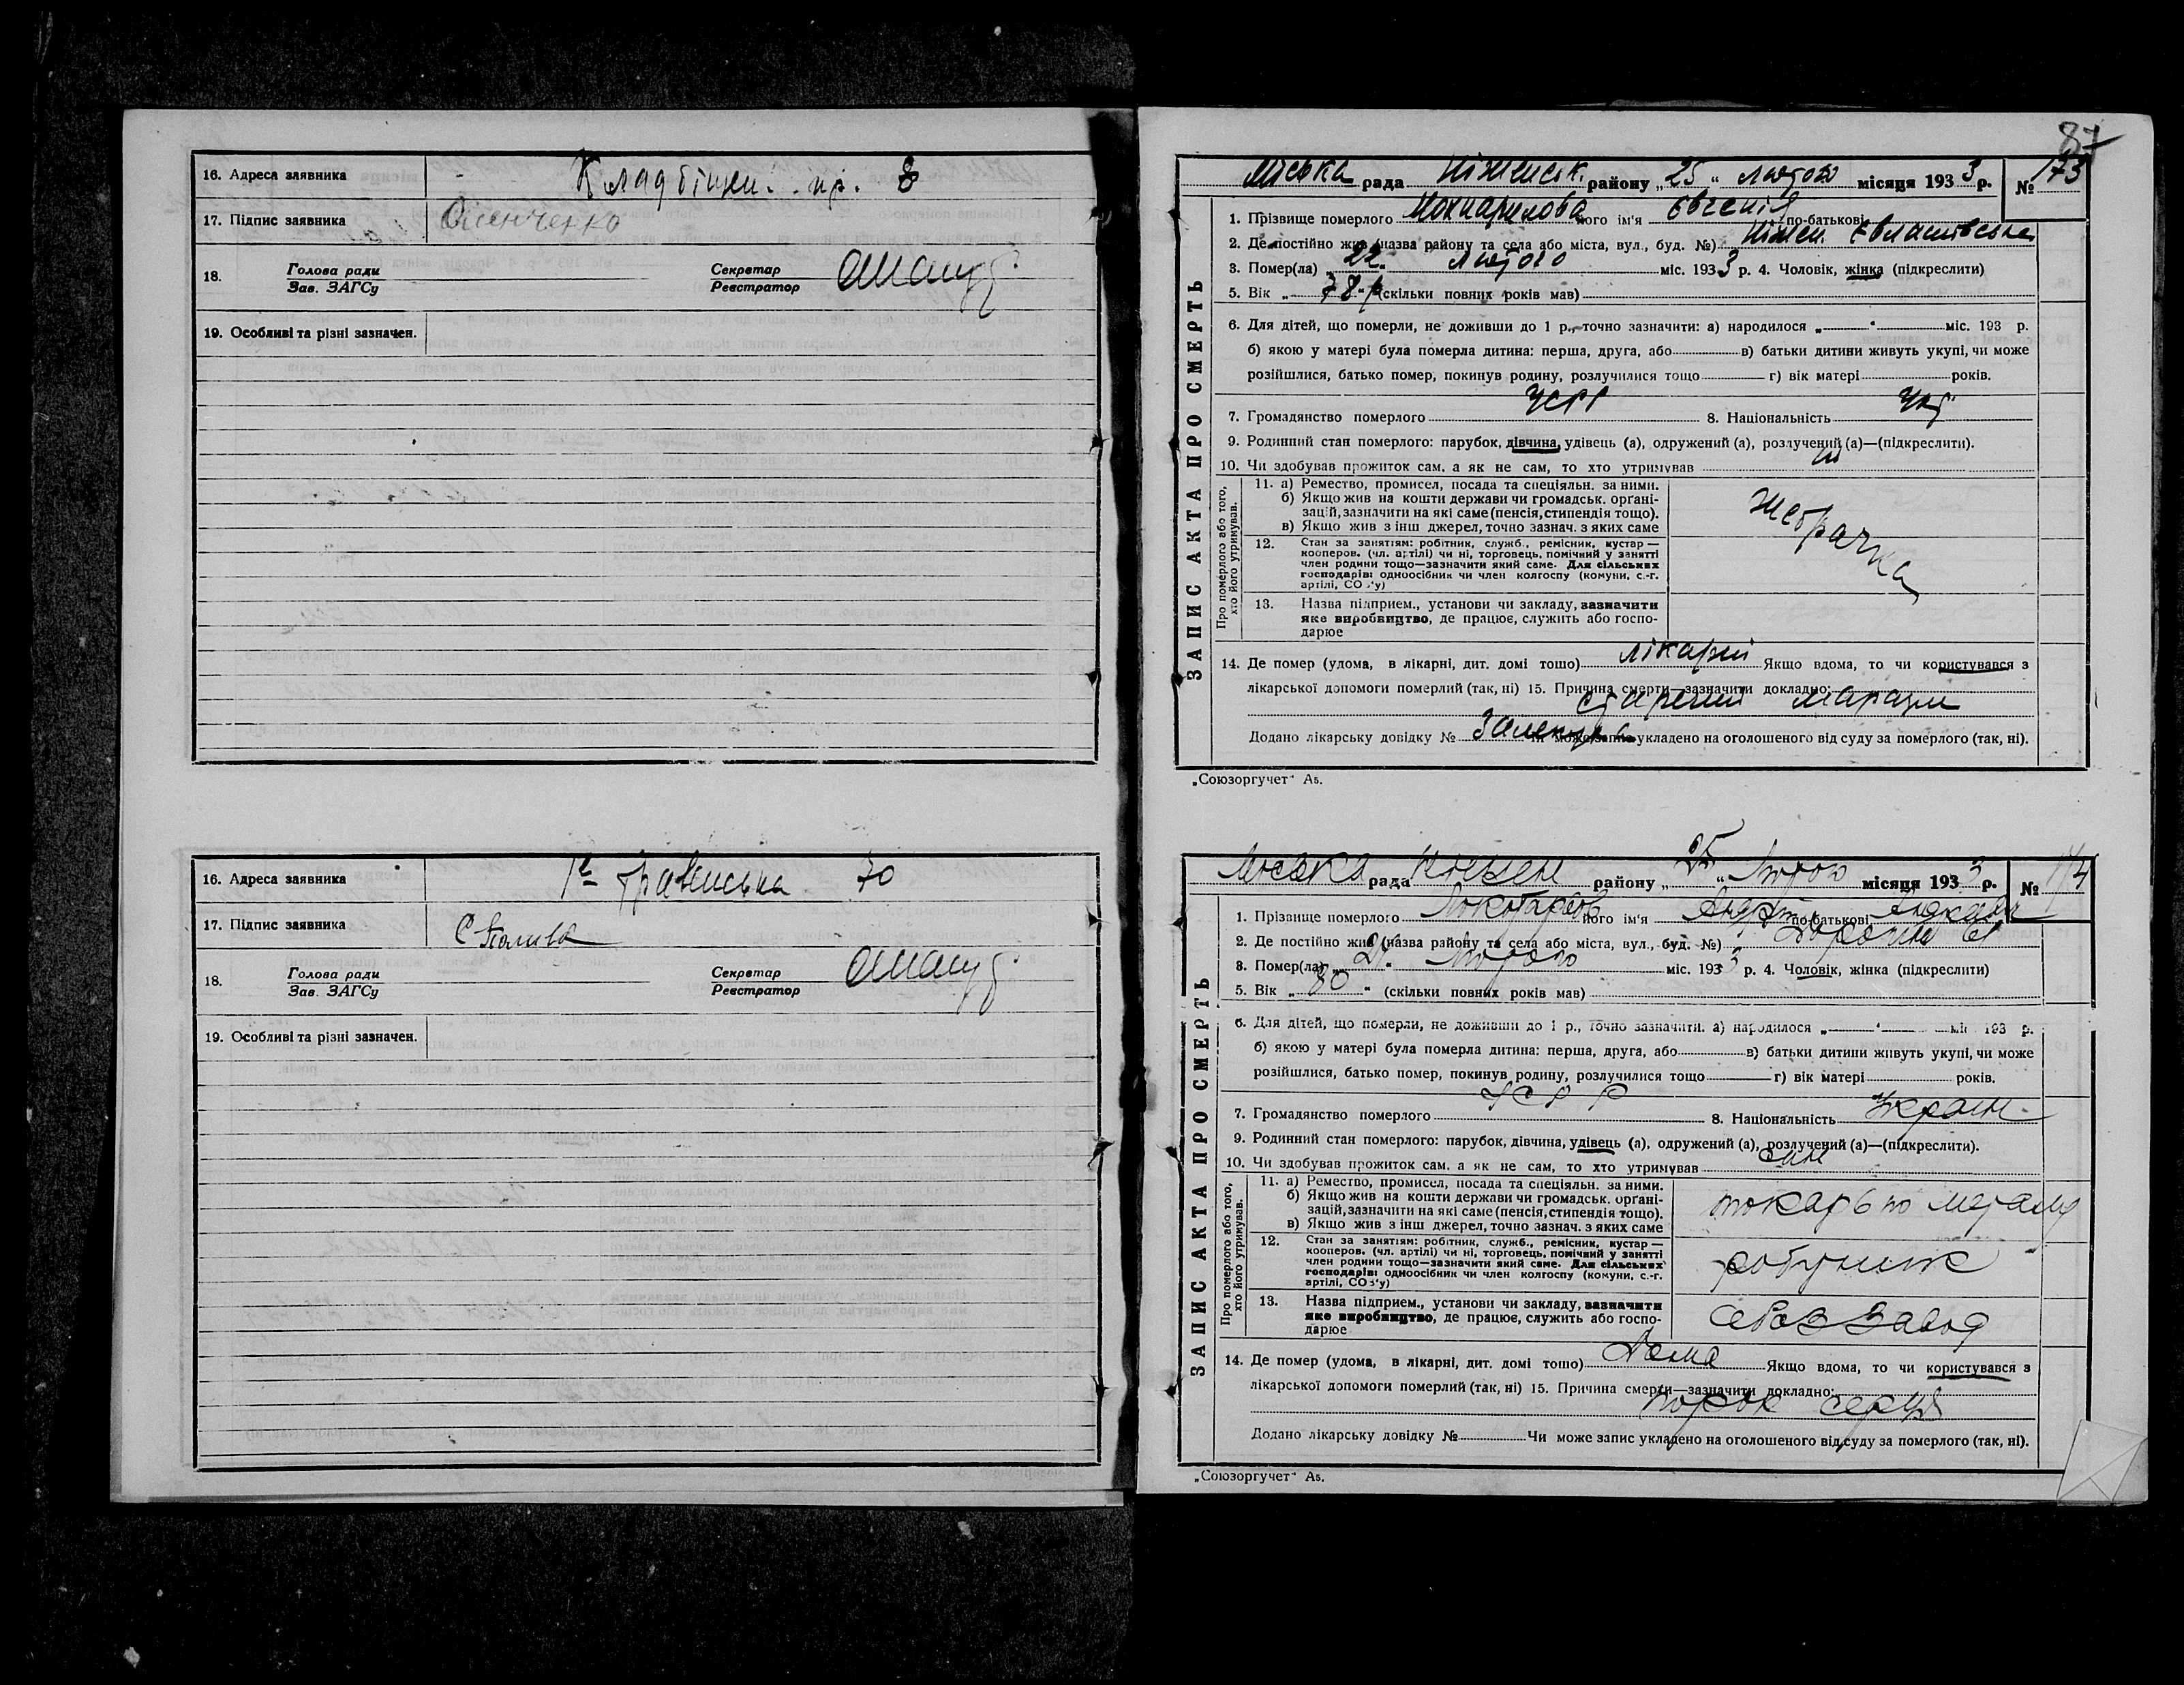 16. Адреса заявника Кладбіщен. пр. 8
17. Підпис заявника
18. Голова ради Секретар
Зав. ЗАГСу Реєстратор
19. Особливі та різні зазначен.
16. Адреса заявника 70
17. Підпис заявника
18. Голова ради Секретар
Зав. ЗАГСу Реєстратор
19. Особливі та різні зазначен.
87
ЗАПИС АКТА ПРО СМЕРТЬ
Міська рада Ніженськ. району „25" лютого місяця 1933 р. № 173
1. Прізвище померлого його ім'я Євгенія по-батькові
2. Де постійно жив (назва району та села або міста, вул., буд. №) Ніжен.
3. Помер(ла) „22" лютого міс. 1933 р. 4. Чоловік, жінка (підкреслити)
5. Вік „78 р. (скільки повних років мав)
6. Для дітей, що померли, не доживши до 1 р., точно зазначити: а) народилося „ " міс. 193 р.
б) якою у матері була померла дитина: перша, друга, або в) батьки дитини живуть укупі, чи може
розійшлися, батько помер, покинув родину, розлучилися тощо г) вік матері років.
7. Громадянство померлого УСРР 8. Національність Укр
9. Родинний стан померлого: парубок, дівчина, удівець (а), одружений (а), розлучений (а)—(підкреслити).
10. Чи здобував прожиток сам, а як не сам, то хто утримував
Про померлого або того, хто його утримував.
11. а) Ремество, промисел, посада та спеціяльн. за ними.
б) Якщо жив на кошти держави чи громадськ. орґані-
зацій, зазначити на які саме (пенсія, стипендія тощо).
в) Якщо жив з інш джерел, точно зазнач. з яких саме
жебрачка
12. Стан за заняттям: робітник, служб., ремісник, кустар —
кооперов. (чл. артілі) чи ні, торговець, помічний у занятті
член родини тощо—зазначити який саме. Для сільських
господарів: одноосібник чи член колгоспу (комуни, с.-г.
артілі, СОЗ'у)
13. Назва підприєм., установи чи закладу, зазначити
яке виробництво, де працює, служить або госпо-
дарює
14. Де помер (удома, в лікарні, дит. домі тощо) лікарні Якщо вдома, то чи користувався з
лікарської допомоги померлий (так, ні) 15. Причина смерти—зазначити докладно:
старечий маразм
Додано лікарську довідку № Чи може запис укладено на оголошеного від суду за померлого (так, ні).
„Союзоргучет" А5.
ЗАПИС АКТА ПРО СМЕРТЬ
Міська рада Ніжен району „25" Лютого місяця 1933 р. № 174
1. Прізвище померлого його ім'я по-батькові
2. Де постійно жив (назва району та села або міста, вул., буд. №)
3. Помер(ла) „ " Лютого міс. 1933 р. 4. Чоловік, жінка (підкреслити)
5. Вік „80" (скільки повних років мав)
6. Для дітей, що померли, не доживши до 1 р., точно зазначити: а) народилося „ " міс. 193 р.
б) якою у матері була померла дитина: перша, друга, або в) батьки дитини живуть укупі, чи може
розійшлися, батько помер, покинув родину, розлучилися тощо г) вік матері років.
7. Громадянство померлого УСРР 8. Національність Україн
9. Родинний стан померлого: парубок, дівчина, удівець (а), одружений (а), розлучений (а)—(підкреслити).
10. Чи здобував прожиток сам, а як не сам, то хто утримував син
Про померлого або того, хто його утримував.
11. а) Ремество, промисел, посада та спеціяльн. за ними.
б) Якщо жив на кошти держави чи громадськ. орґані-
зацій, зазначити на які саме (пенсія, стипендія тощо).
в) Якщо жив з інш джерел, точно зазнач. з яких саме
токарь по металу
12. Стан за заняттям: робітник, служб., ремісник, кустар —
кооперов. (чл. артілі) чи ні, торговець, помічний у занятті
член родини тощо—зазначити який саме. Для сільських
господарів: одноосібник чи член колгоспу (комуни, с.-г.
артілі, СОЗ'у)
робітник
13. Назва підприєм., установи чи закладу, зазначити
яке виробництво, де працює, служить або госпо-
дарює
Завод
14. Де помер (удома, в лікарні, дит. домі тощо) Дома Якщо вдома, то чи користувався з
лікарської допомоги померлий (так, ні) 15. Причина смерти—зазначити докладно:
порок серця
Додано лікарську довідку № Чи може запис укладено на оголошеного від суду за померлого (так, ні).
„Союзоргучет" А5.